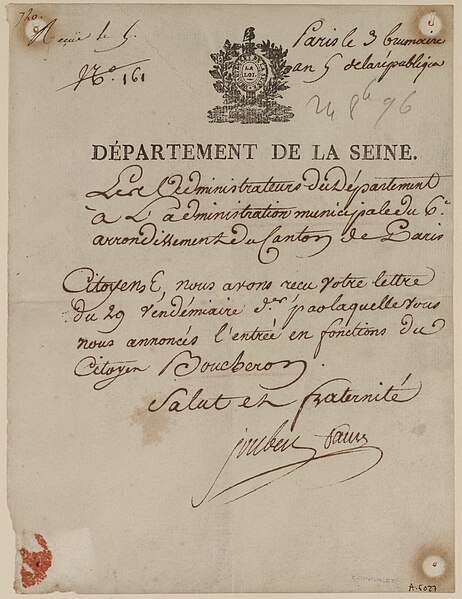 720
Reçüe le 5.
N.° 161
Paris le 3 brumaire
an 5 de la république
LA
LOI.
24 8b 96
DÉPARTEMENT DE LA SEINE.
Les administrateurs du Département
à L'administration municipale du 6.e
arrondissement du Canton de Paris
Citoyens, nous avons reçu votre lettre
du 29 vendémiaire d.er par laquelle vous
nous annoncés l'entrée en fonctions du
Citoyen Boucheron.
Salut et fraternité
joubert
A.5027